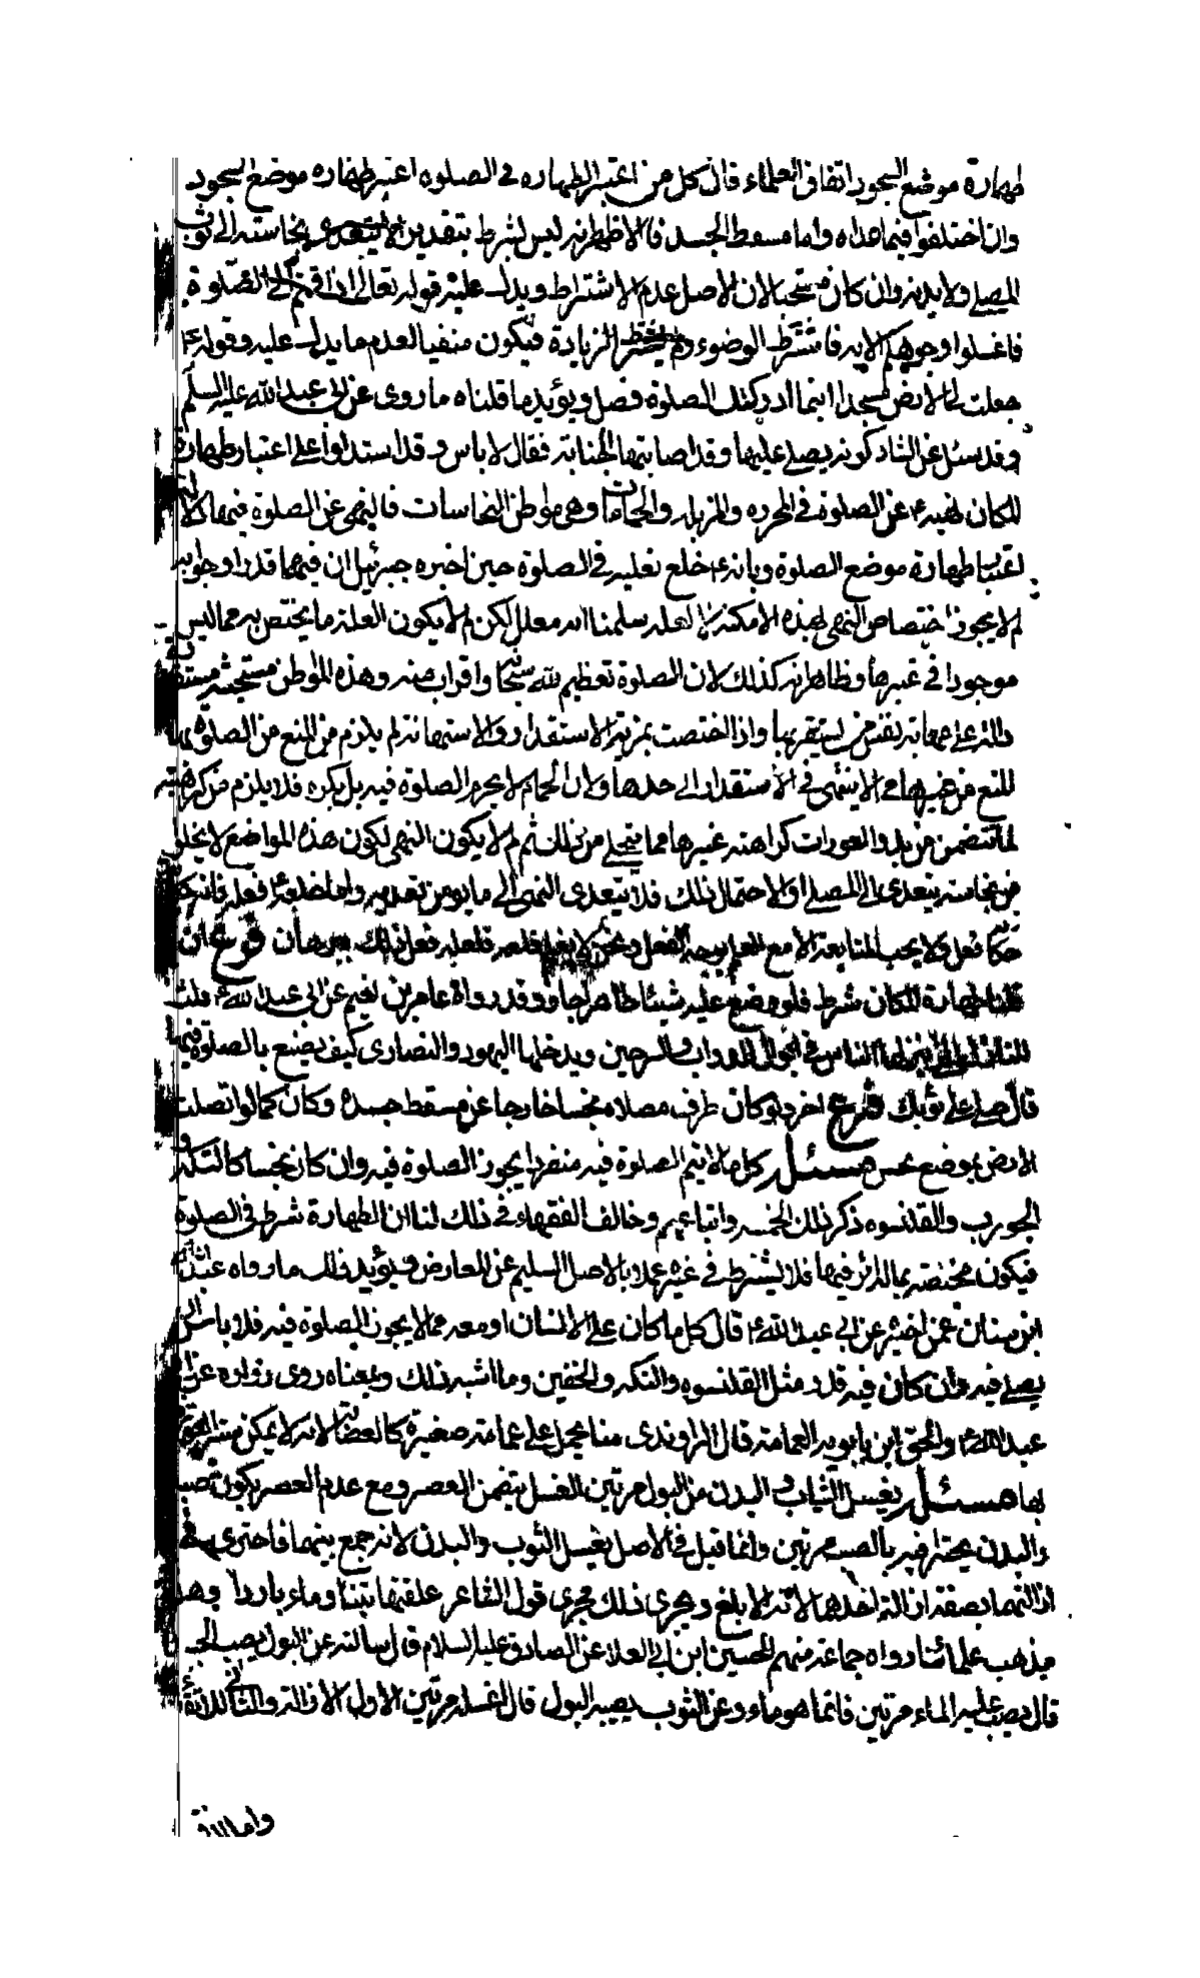 طهارة موضع السجود اتفاق العلماء فان كل من اعتبر الطهاره في الصلوه اعتبر طهاره موضع السجود
وان اختلفوا فيما عداه واما مسقط الجسد فالاظهر انه ليس بشرط بتقدير ان لا يتعدى نجاسته الى ثوب
المصلي ولا بدنه وان كان مستحبا لان الاصل عدم الاشتراط ويدل عليه قوله تعالى اذا قمتم الى الصلوة
فاغسلوا وجوهكم الايه فاشترط الوضوء ولم يشترط الزيادة فيكون منفيا لعدم ما يدل عليه وقوله ع
جعلت لي الارض مسجدا اينما ادركتك الصلوة فصل ويؤيد ما قلناه ما روى عن ابي عبد الله عليه السلم
وقد سئل عن الشاذكونه يصلي عليها وقد اصابتها الجنابة فقال لا باس وقد استدلوا على اعتبار طهارة
المكان بنهيه ع عن الصلوة في المجزره والمزبله والحمامات وهي مواطن النجاسات فالنهي عن الصلوة فيها
طهارة موضع الصلوة وبانه ع خلع نعليه في الصلوة حين اخبره جبرئيل ان فيهما قذرا وجوابه
لم لا يجوز اختصاص النهي بهذه الامكنة لا لعله سلمنا انه معلل لكن لم لا يكون العلة ما يختص به مما ليس
موجودا في غيرها وظاهر انه كذلك لان الصلوة تعظيم لله سبحانه واقتراب منه وهذه المواطن مستخبثه
دالة على مهانة نفس من يستقر بها واذا اختصت بمزية الاستقذار والاستهانة لم يلزم من المنع من الصلوة بها
المنع من غيرها مما لا ينتهي في الاستقذار الى حدها ولان الحمام لا يحرم الصلوة فيه بل يكره فلا يلزم من كراهيته
لما تتضمن من بدو العورات كراهته غيرها مما يتخلى من ذلك ثم لم لا يكون النهي لكون هذه المواضع لا يخلو
من نجاسته يتعدى الى المصلي او لاحتمال ذلك فلا يتعدى النهي الى ما يؤمن تعديه واما خلعه ع نعله فانه
حكاية فعل ولا يجب المتابعة الا مع العلم بوجه الفعل فلعله فعل ذلك فرع ان
قلنا طهارة المكان شرط فلو وضع عليه شيئا طاهرا جاز وقد رواه عامر بن نعيم عن ابي عبد الله ع قلت
المنازل التي ينزلها الناس فيها ابوال الدواب والسرجين ويدخلها اليهود والنصارى كيف يصنع بالصلوة فيها
قال صل على ثوبك فرع اخر لو كان طرف مصلاه نجسا خارجا عن مسقط جسده وكان كما لو اتصلت
الارض بموضع نجس مسئله كل ما لا يتم الصلوة فيه منفردا يجوز الصلوة فيه وان كان نجسا كالتكه و
الجورب والقلنسوه ذكر ذلك الخمسه واتباعهم وخالف الفقهاء في ذلك لنا ان الطهارة شرط في الصلوة
فيكون مختصة بما لذكر فيها فلا يشترط في غيره عملا بالاصل السليم عن المعارض ويؤيد ذلك ما رواه عبد الله
ابن سنان عمن اخبره عن ابي عبد الله ع قال كل ما كان على الانسان او معه مما لا يجوز الصلوة فيه فلا باس ان
يصلي فيه وان كان فيه قذر مثل القلنسوه والتكه والخفين وما اشبه ذلك وبمعناه روى زراره عن ابي
عبد الله ع والحق ابن بابويه العمامة قال الراوندى منا يحمل على عمامة صغيرة كالعصابة لانه لا يمكن ستر العورة
بها مسئله يغسل الثياب والبدن من البول مرتين الغسل يتضمن العصر ومع عدم العصر يكون صبا
والبدن يجتزا فيه بالصب مرتين وانما قيل في الاصل يغسل الثوب والبدن لانه جمع بينهما فاجتزى
قول الشاعر علفتها تبنا وماء باردا وهذا
مذهب علمائنا رواه جماعة منهم الحسين ابن ابي العلا عن الصادق عليه السلام قال سالته عن البول يصيب الجسد
قال يصب عليه الماء مرتين فانما هو ماء وعن الثوب يصيبه البول قال اغسله مرتين الاول للازالة والثاني للانقاء